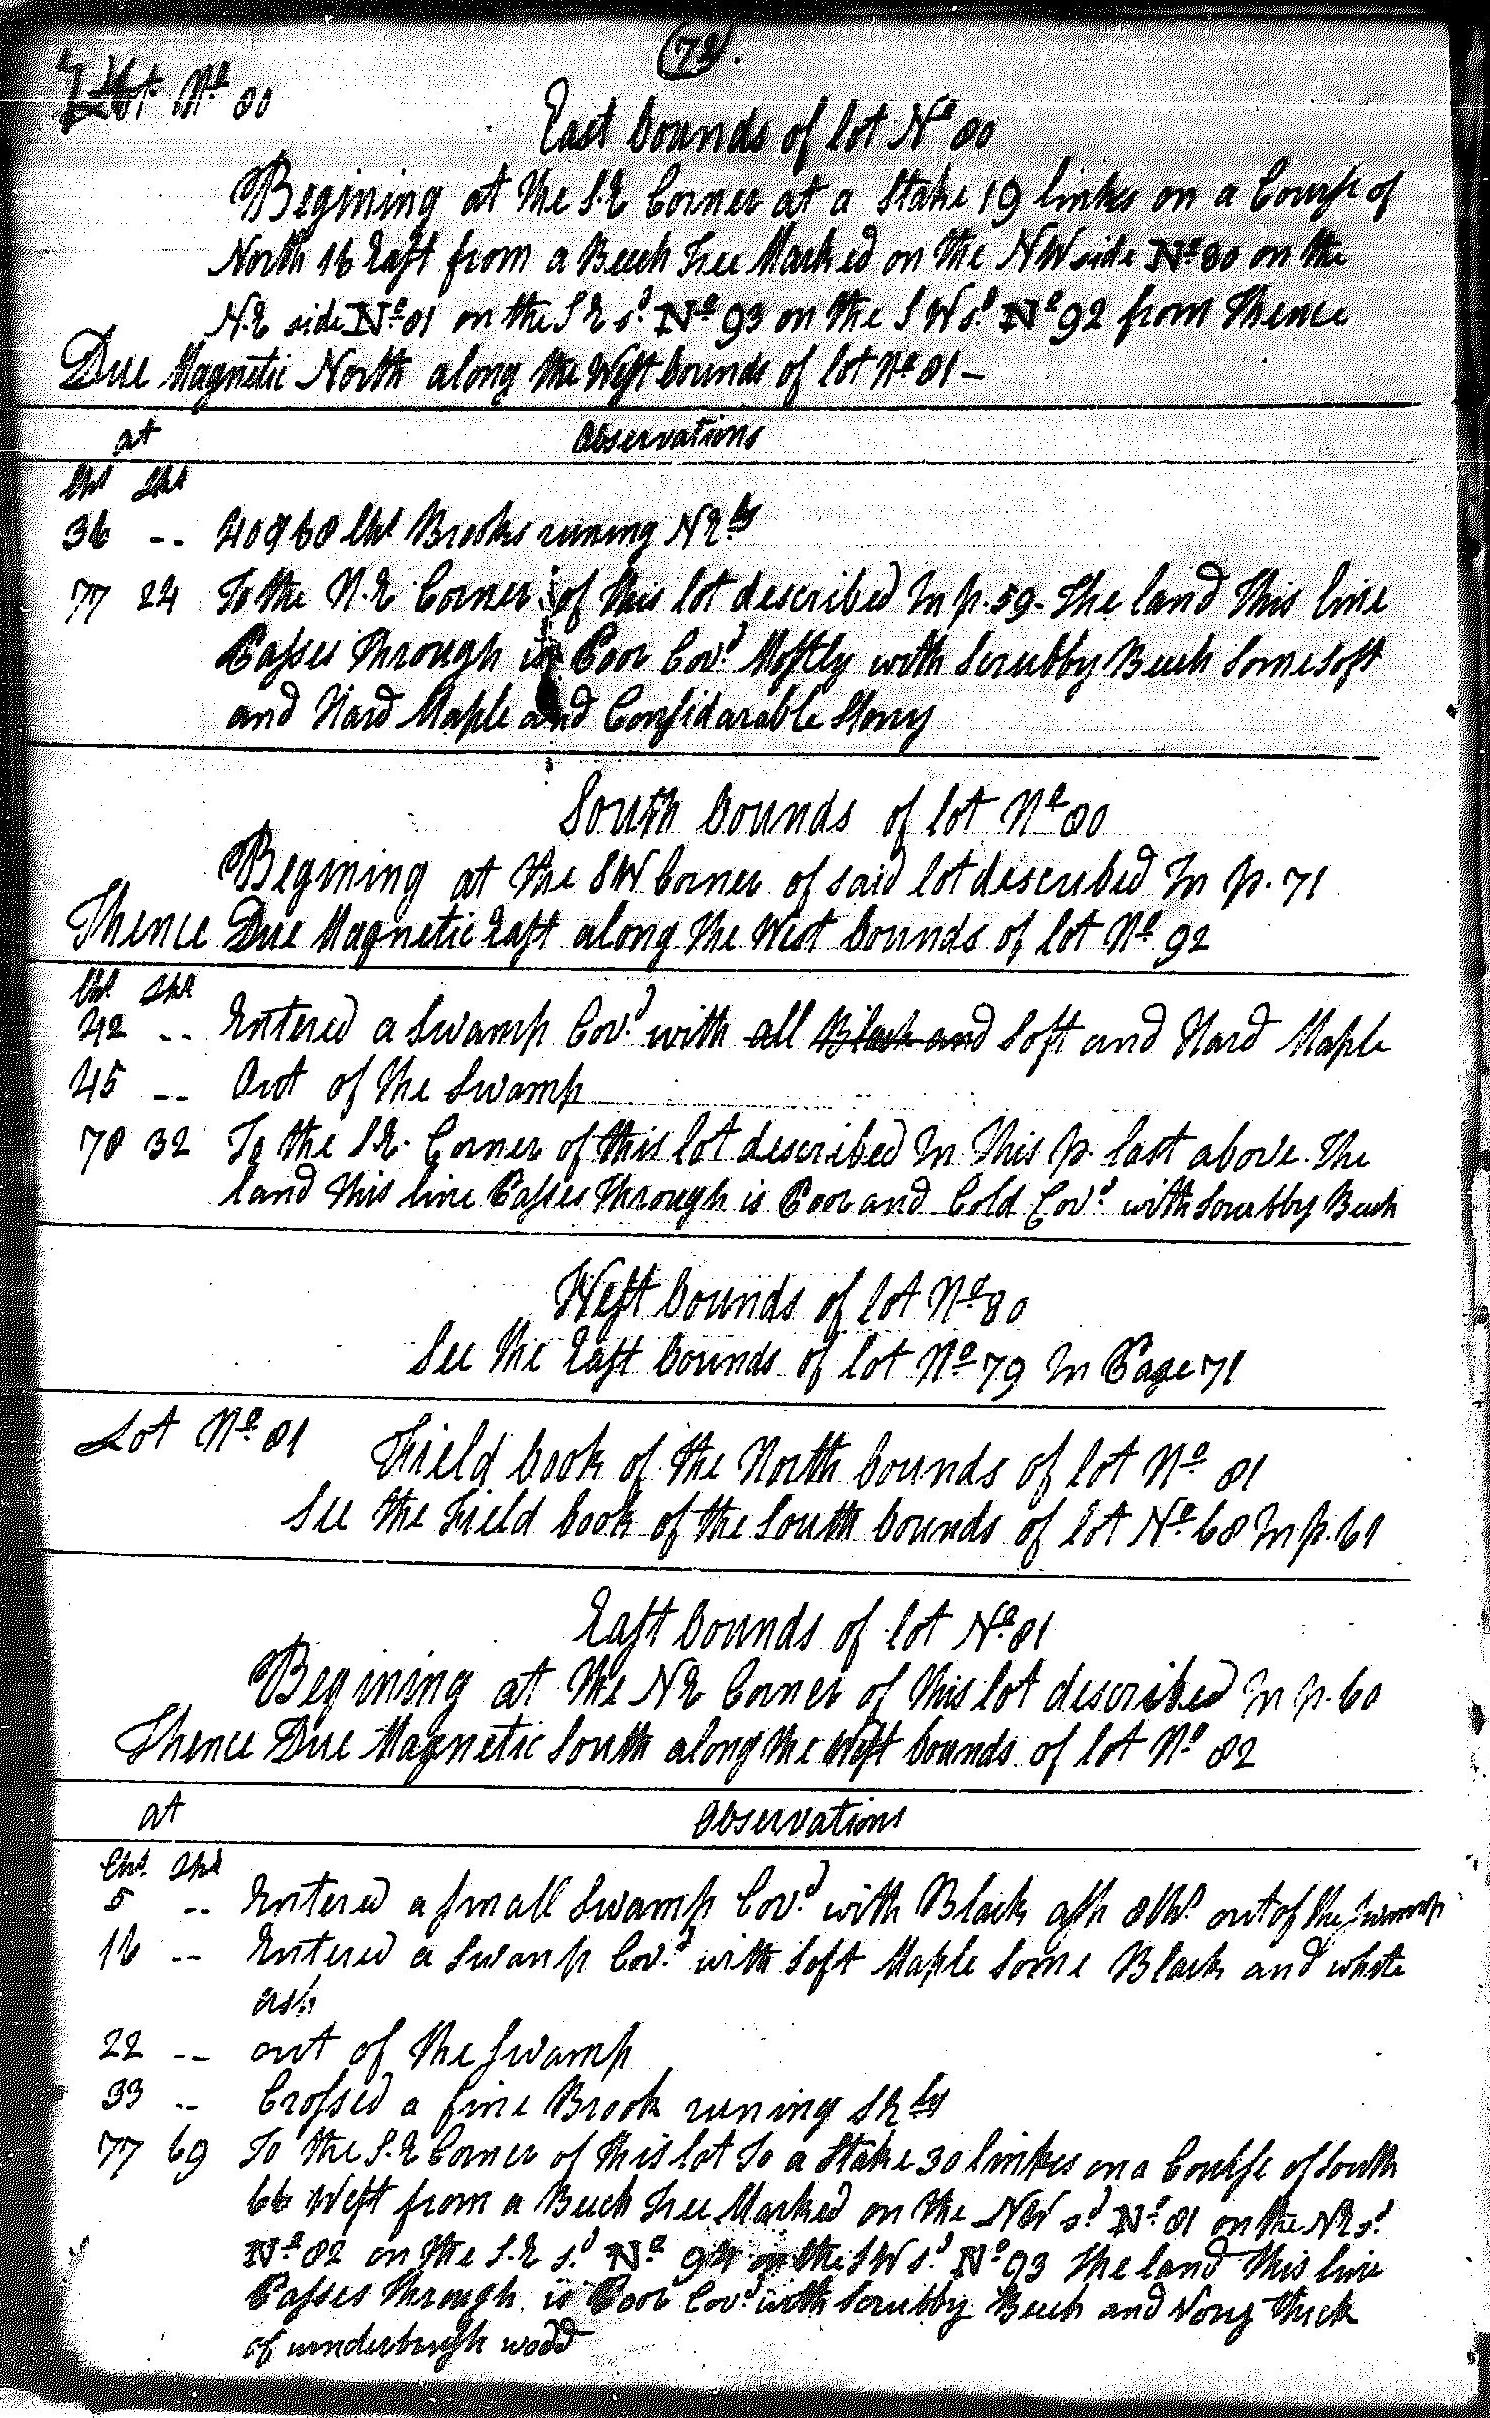 (72).
Lot No 80
East bounds of lot No 80
Begining at the S.E Corner at a Stake 19 links on a Course of
North 16 East from a Beech Tree Marked on the NW side No 80 on the
N.E side No 81 on the S E sd No 93 on the S W sd No 92 from Thence
Due Magnetic North along the West bounds of lot No 81 -
at Observations
Chs Lks
36 -- 40 & 60 Chs Brooks runing NEly
77 24 To the N.E Corner of this lot described In p. 59. The land This line
Passes Through is Poor Covd Mostly with Scrubby Beech Some Soft
and Hard Maple and Considarable Stony
South bounds of lot No 80
Begining at the SW Corner of said lot described In p. 71
Thence Due Magnetic East along the West bounds of lot No 92
Chs Lks
42 -- Entered a Swamp Covd with all Black and Soft and Hard Maple
45 -- Out of the Swamp
78 32 To the S.E. Corner of this lot described In This p. last above. The
land This line Passes Through is Poor and Cold Covd with Scrubby Beech
West bounds of lot No 80
See the East bounds of lot No 79 In Page 71
Lot No 81
Field book of the North bounds of lot No 81
See the Field book of the South bounds of lot No 68 In p. 61
East bounds of lot No 81
Begining at the NE Corner of this lot described In p. 60
Thence Due Magnetic South along the West bounds of lot No 82
at Observations
Chs. Lks
5 -- Entered a small Swamp Covd with Black ash 8 Chs. out of the Swamp
16 -- Entered a Swamp Covd with Soft Maple Some Black and white
ash
22 -- out of the Swamp
33 -- Crossed a fine Brook runing SEly
77 69 To the S.E Corner of this lot To a Stake 30 linkes on a Course of South
66 West from a Beech Tree Marked on the NW sd No 81 on the NE sd
No 82 on the S.E sd No 94 on the SW sd No 93 The land This line
Passes Through is Poor Covd with Scrubby Beech and Very Thick
of underbrush wood